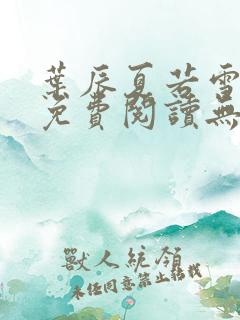 葉辰夏若雪
免費閱讀無
獸人統領
未經同意禁止轉載